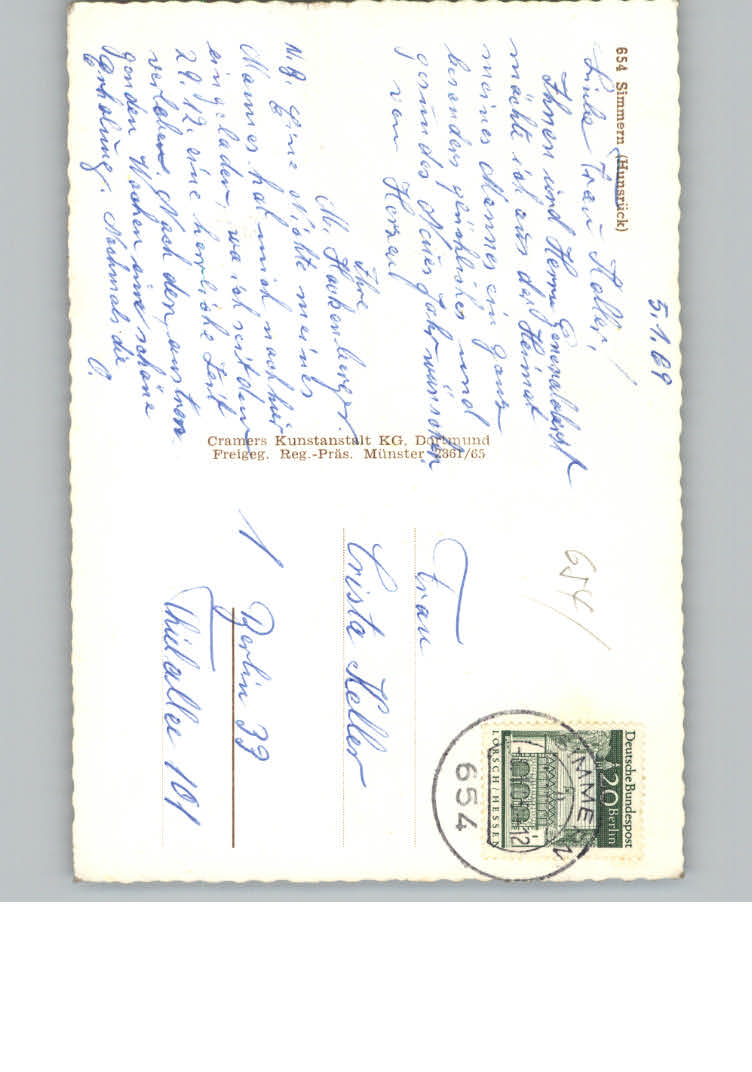 654 Simmern (Hunsrück)
5.1.69
Liebe Frau Keller,
Ihnen und Herrn Generaloberst
möchte ich aus der Heimat
meines Mannes ein ganz
besonders glückliches und
gesundes Neues Jahr wünschen
von Herzen
Ihre
M.
N.B. Eine Nichte meines
Mannes hat mich nach hier
eingeladen, wo ich seit dem
29.12. eine herrliche Zeit
verlebe. Nach den
den Wochen eine schöne
Erholung. Nochmals die
O.
Cramers Kunstanstalt KG, Dortmund
Freigeg. Reg.-Präs. Münster 2361/65
654/
Frau
Crista Keller
1 Berlin 33
Thielallee 101
Deutsche Bundespost
20 Berlin
LORSCH/HESSEN
SIMMERN
654